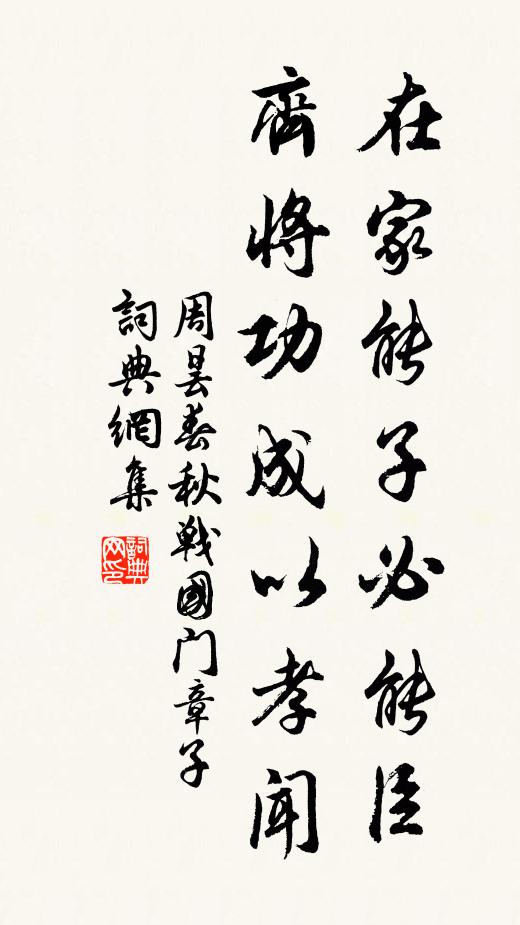 在家能子必能臣
齊將功成以孝聞
周曇春秋戰國門章子
詞典網集
詞典网印